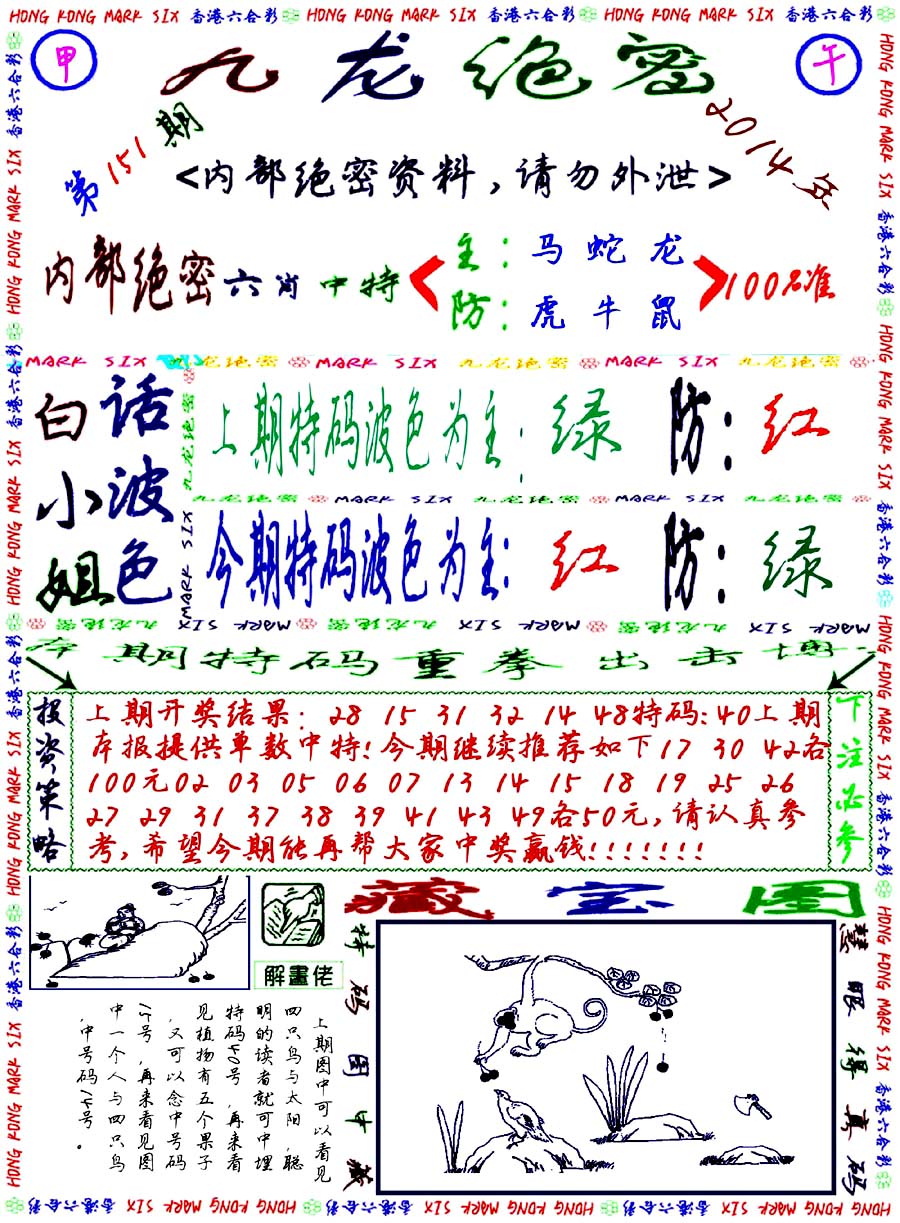 HONG KONG MARK SIX 香港六合彩 HONG KONG MARK SIX 香港六合彩 HONG KONG MARK SIX 香港六合彩
甲
九龙绝密
午
第151期
2014年
<内部绝密资料，请勿外泄>
内部绝密六肖中特
主：马 蛇 龙
防：虎 牛 鼠
100%准
MARK SIX 九龙绝密 MARK SIX 九龙绝密 MARK SIX 九龙绝密
白小姐
话波色
上期特码波色为主：绿 防：红
九龙绝密 MARK SIX 九龙绝密 MARK SIX 九龙绝密
今期特码波色为主：红 防：绿
九龙绝密 MARK SIX 九龙绝密 MARK SIX 九龙绝密 MARK SIX
本期特码重拳出击博
投资策略
上期开奖结果：28 15 31 32 14 48特码:40上期
本报提供单数中特!今期继续推荐如下17 30 42各
100元02 03 05 06 07 13 14 15 18 19 25 26
27 29 31 37 38 39 41 43 49各50元,请认真参
考,希望今期能再帮大家中奖赢钱!!!!!!!
下注必参
藏宝图
解畫佬
特码图中藏
慧眼得真码
上期图中可以看见
四只鸟与太阳，聪
明的读者就可中埋
特码40号，再来看
见植物有五个果子
，又可以念中号码
15号，再来看见图
中一个人与四只鸟
，中号码14号。
HONG KONG MARK SIX 香港六合彩 HONG KONG MARK SIX 香港六合彩 HONG KONG MARK SIX 香港六合彩